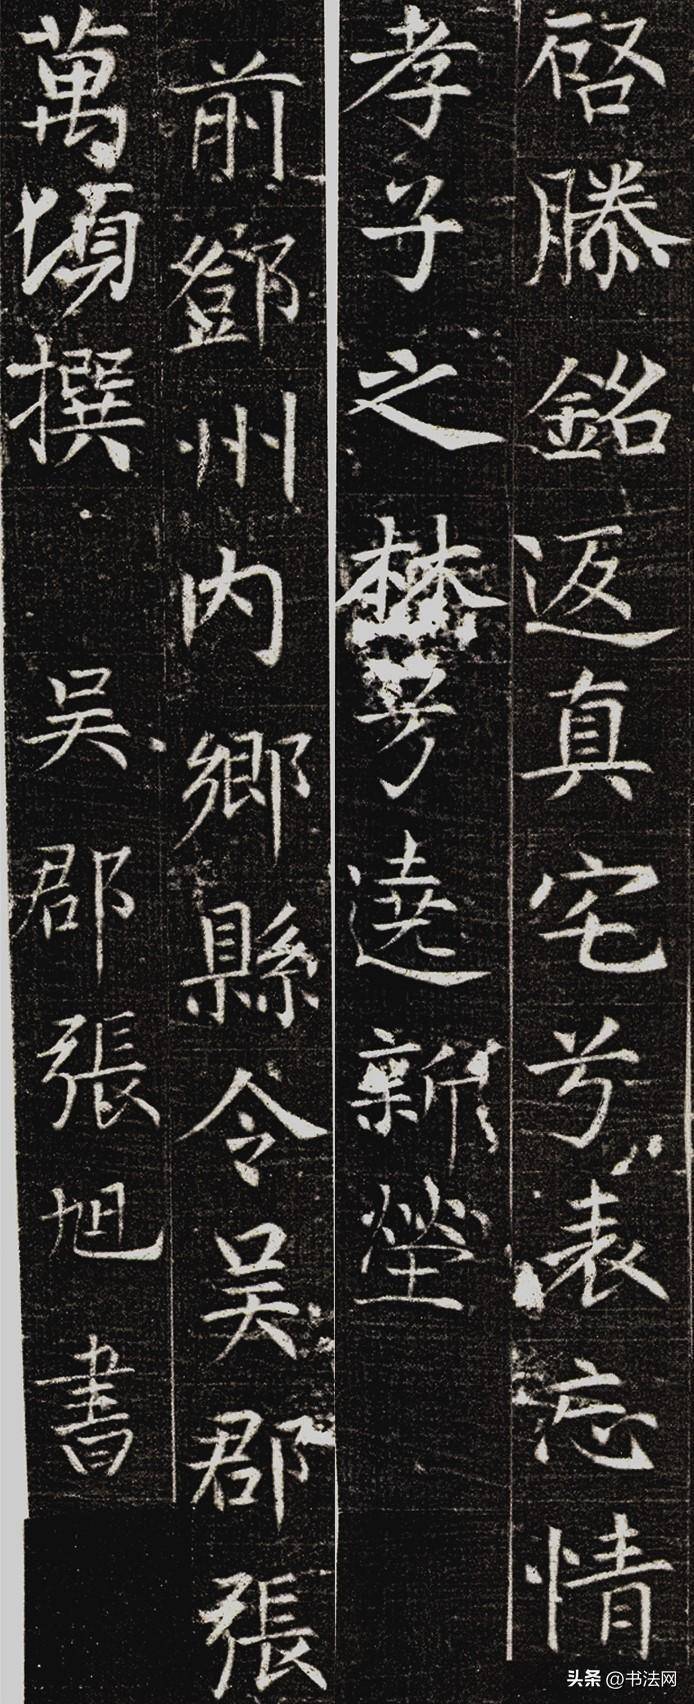 啓滕銘返真宅兮表忘情
孝子之兮遶新塋
前鄧州内鄉縣令吴郡張
萬頃撰 吴郡張旭書
头条 @书法网